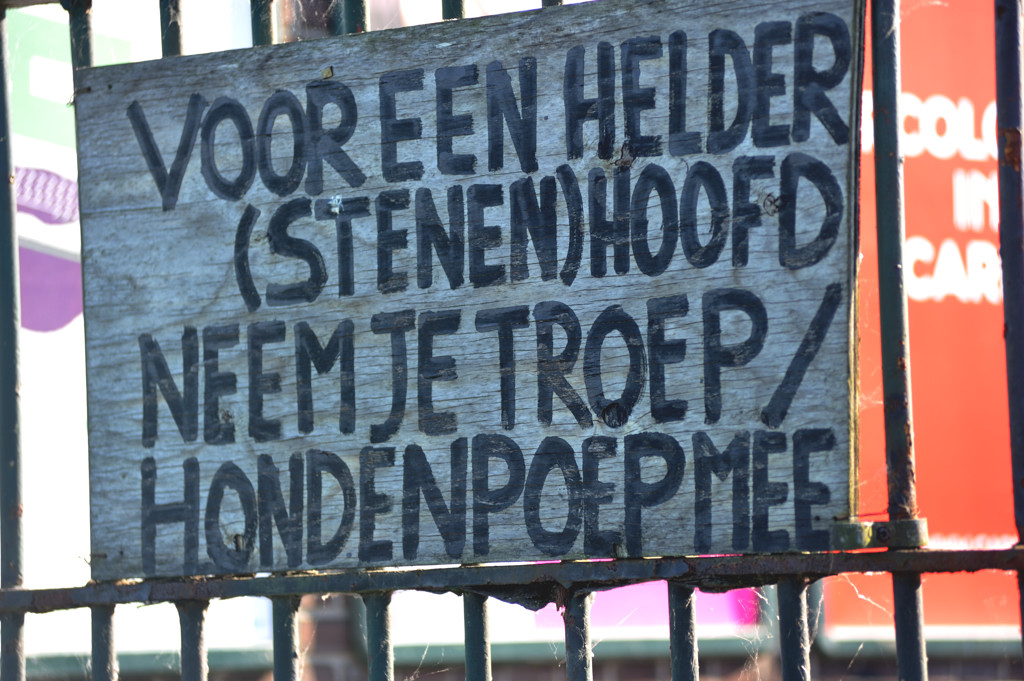 VOOR EEN HELDER
(STENEN) HOOFD
NEEM JE TROEP /
HONDENPOEP MEE
COLO
IN
CAR